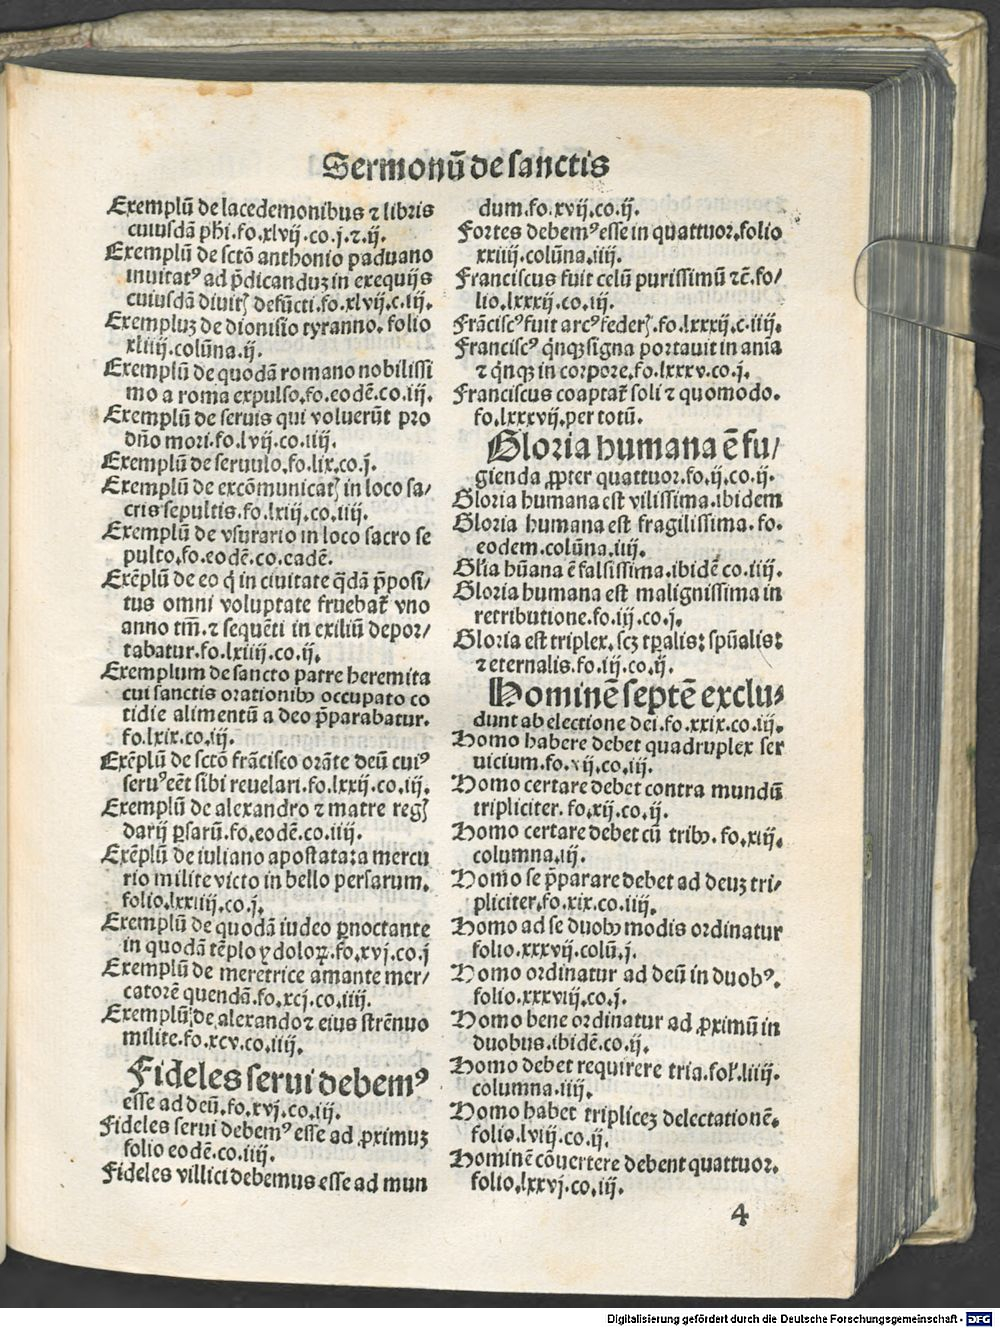 Sermonū de sanctis
Exemplū de lacedemonibus ⁊ libris
cuiusdā phi.fo.xlvij.co.j.⁊.ij.
Exemplū de sctō anthonio paduano
inuitatꝰ ad p̄dicanduꝫ in exequijs
cuiusdā diuitꝭ defūcti.fo.xlvij.c.iij.
Exempluꝫ de dionisio tyranno. folio
xliiij.colūna.ij.
Exemplū de quodā romano nobilissi
mo a roma expulso.fo.eodē.co.iij.
Exemplū de seruis qui voluerūt pro
dño mori.fo.lvij.co.iiij.
Exemplū de seruulo.fo.lix.co.j.
Exemplū de excōmunicatꝭ in loco sa/
cris sepultis.fo.lxiij.co.iiij.
Exemplū de vsurario in loco sacro se
pulto.fo.eodē.co.eadē.
Exēplū de eo q̇ in ciuitate q̄dā p̄posi/
tus omni voluptate fruebat᷑ vno
anno tm̄.⁊ sequēti in exiliū depor/
tabatur.fo.lxiiij.co.ij.
Exemplum de sancto patre heremita
cui sanctis orationibꝫ occupato co
tidie alimentū a deo p̄parabatur.
fo.lxix.co.iij.
Exēplū de sctō frācisco orāte deū cuiꝰ
seruꝰ eēt sibi reuelari.fo.lxxij.co.iij.
Exemplū de alexandro ⁊ matre regꝭ
darij ꝑsarū.fo.eodē.co.iiij.
Exēplū de iuliano apostata:a mercu
rio milite victo in bello persarum.
folio.lxxiiij.co.j.
Exemplū de quodā iudeo ꝑnoctante
in quodā tēplo ydoloꝝ.fo.xvj.co.j
Exemplū de meretrice amante mer/
catorē quendā.fo.xcj.co.iiij.
Exemplū de alexando ⁊ eius strēnuo
milite.fo.xcv.co.iiij.
Fideles serui debemꝰ
esse ad deū.fo.xvj.co.iij.
Fideles serui debemꝰ esse ad ꝓximuꝫ
folio eodē.co.iiij.
Fideles villici debemus esse ad mun
dum.fo.xvij.co.ij.
Fortes debemꝰ esse in quattuor.folio
xxiiij.colūna.iiij.
Franciscus fuit celū purissimū ⁊c̄.fo/
lio.lxxxij.co.iij.
Frāciscꝰ fuit arcꝰ federꝭ.fo.lxxxij.c.iiij.
Franciscꝰ q̇nqꝫ signa portauit in aīa
⁊ q̇nqꝫ in corpore.fo.lxxxv.co.j.
Franciscus coaptat᷑ soli ⁊ quomodo.
fo.lxxxvij.per totū.
Gloria humana ē fu/
gienda ꝓpter quattuor.fo.ij.co.ij.
Gloria humana est vilissima.ibidem
Gloria humana est fragilissima. fo.
eodem.colūna.iij.
Glīa hūana ē falsissima.ibidē co.iiij.
Gloria humana est malignissima in
retributione.fo.iij.co.j.
Gloria est triplex.scꝫ tꝑalis: spūalis:
⁊ eternalis.fo.iij.co.ij.
Hominē septē exclu/
dunt ab electione dei.fo.xxix.co.iij.
Homo habere debet quadruplex ser
uicium.fo.xij.co.iij.
Homo certare debet contra mundū
tripliciter. fo.xij.co.ij.
Homo certare debet cū tribꝫ. fo.xiij.
columna.iij.
Homo se p̄parare debet ad deuꝫ tri/
pliciter.fo.xix.co.iiij.
Homo ad se duobꝫ modis ordinatur
folio.xxxvij.colū.j.
Homo ordinatur ad deū in duobꝰ.
folio.xxxviij.co.j.
Homo bene ordinatur ad ꝓximū in
duobus.ibidē.co.ij.
Homo debet requirere tria.fol'.liiij.
columna.iiij.
Homo habet tripliceꝫ delectationē.
folio.lviij.co.ij.
Hominē cōuertere debent quattuor.
folio.lxxvj.co.iij.
4
Digitalisierung gefördert durch die Deutsche Forschungsgemeinschaft - DFG